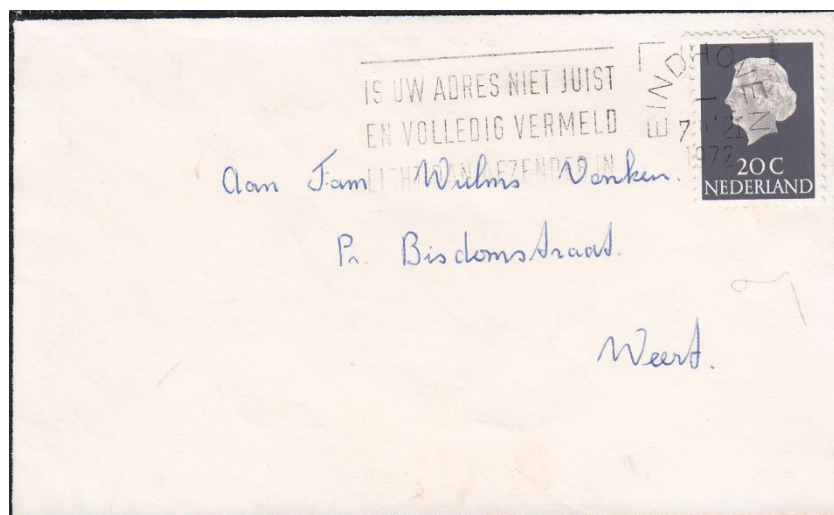 IS UW ADRES NIET JUIST
EN VOLLEDIG VERMELD
LICHT DAN AFZENDER IN
EINDHOVEN
1972
20 C
NEDERLAND
Aan Fam Wulms Vonken.
Pr. Bisdomstraat.
Weert.